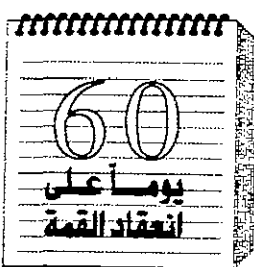 60
يوماً على
انعقاد القمة